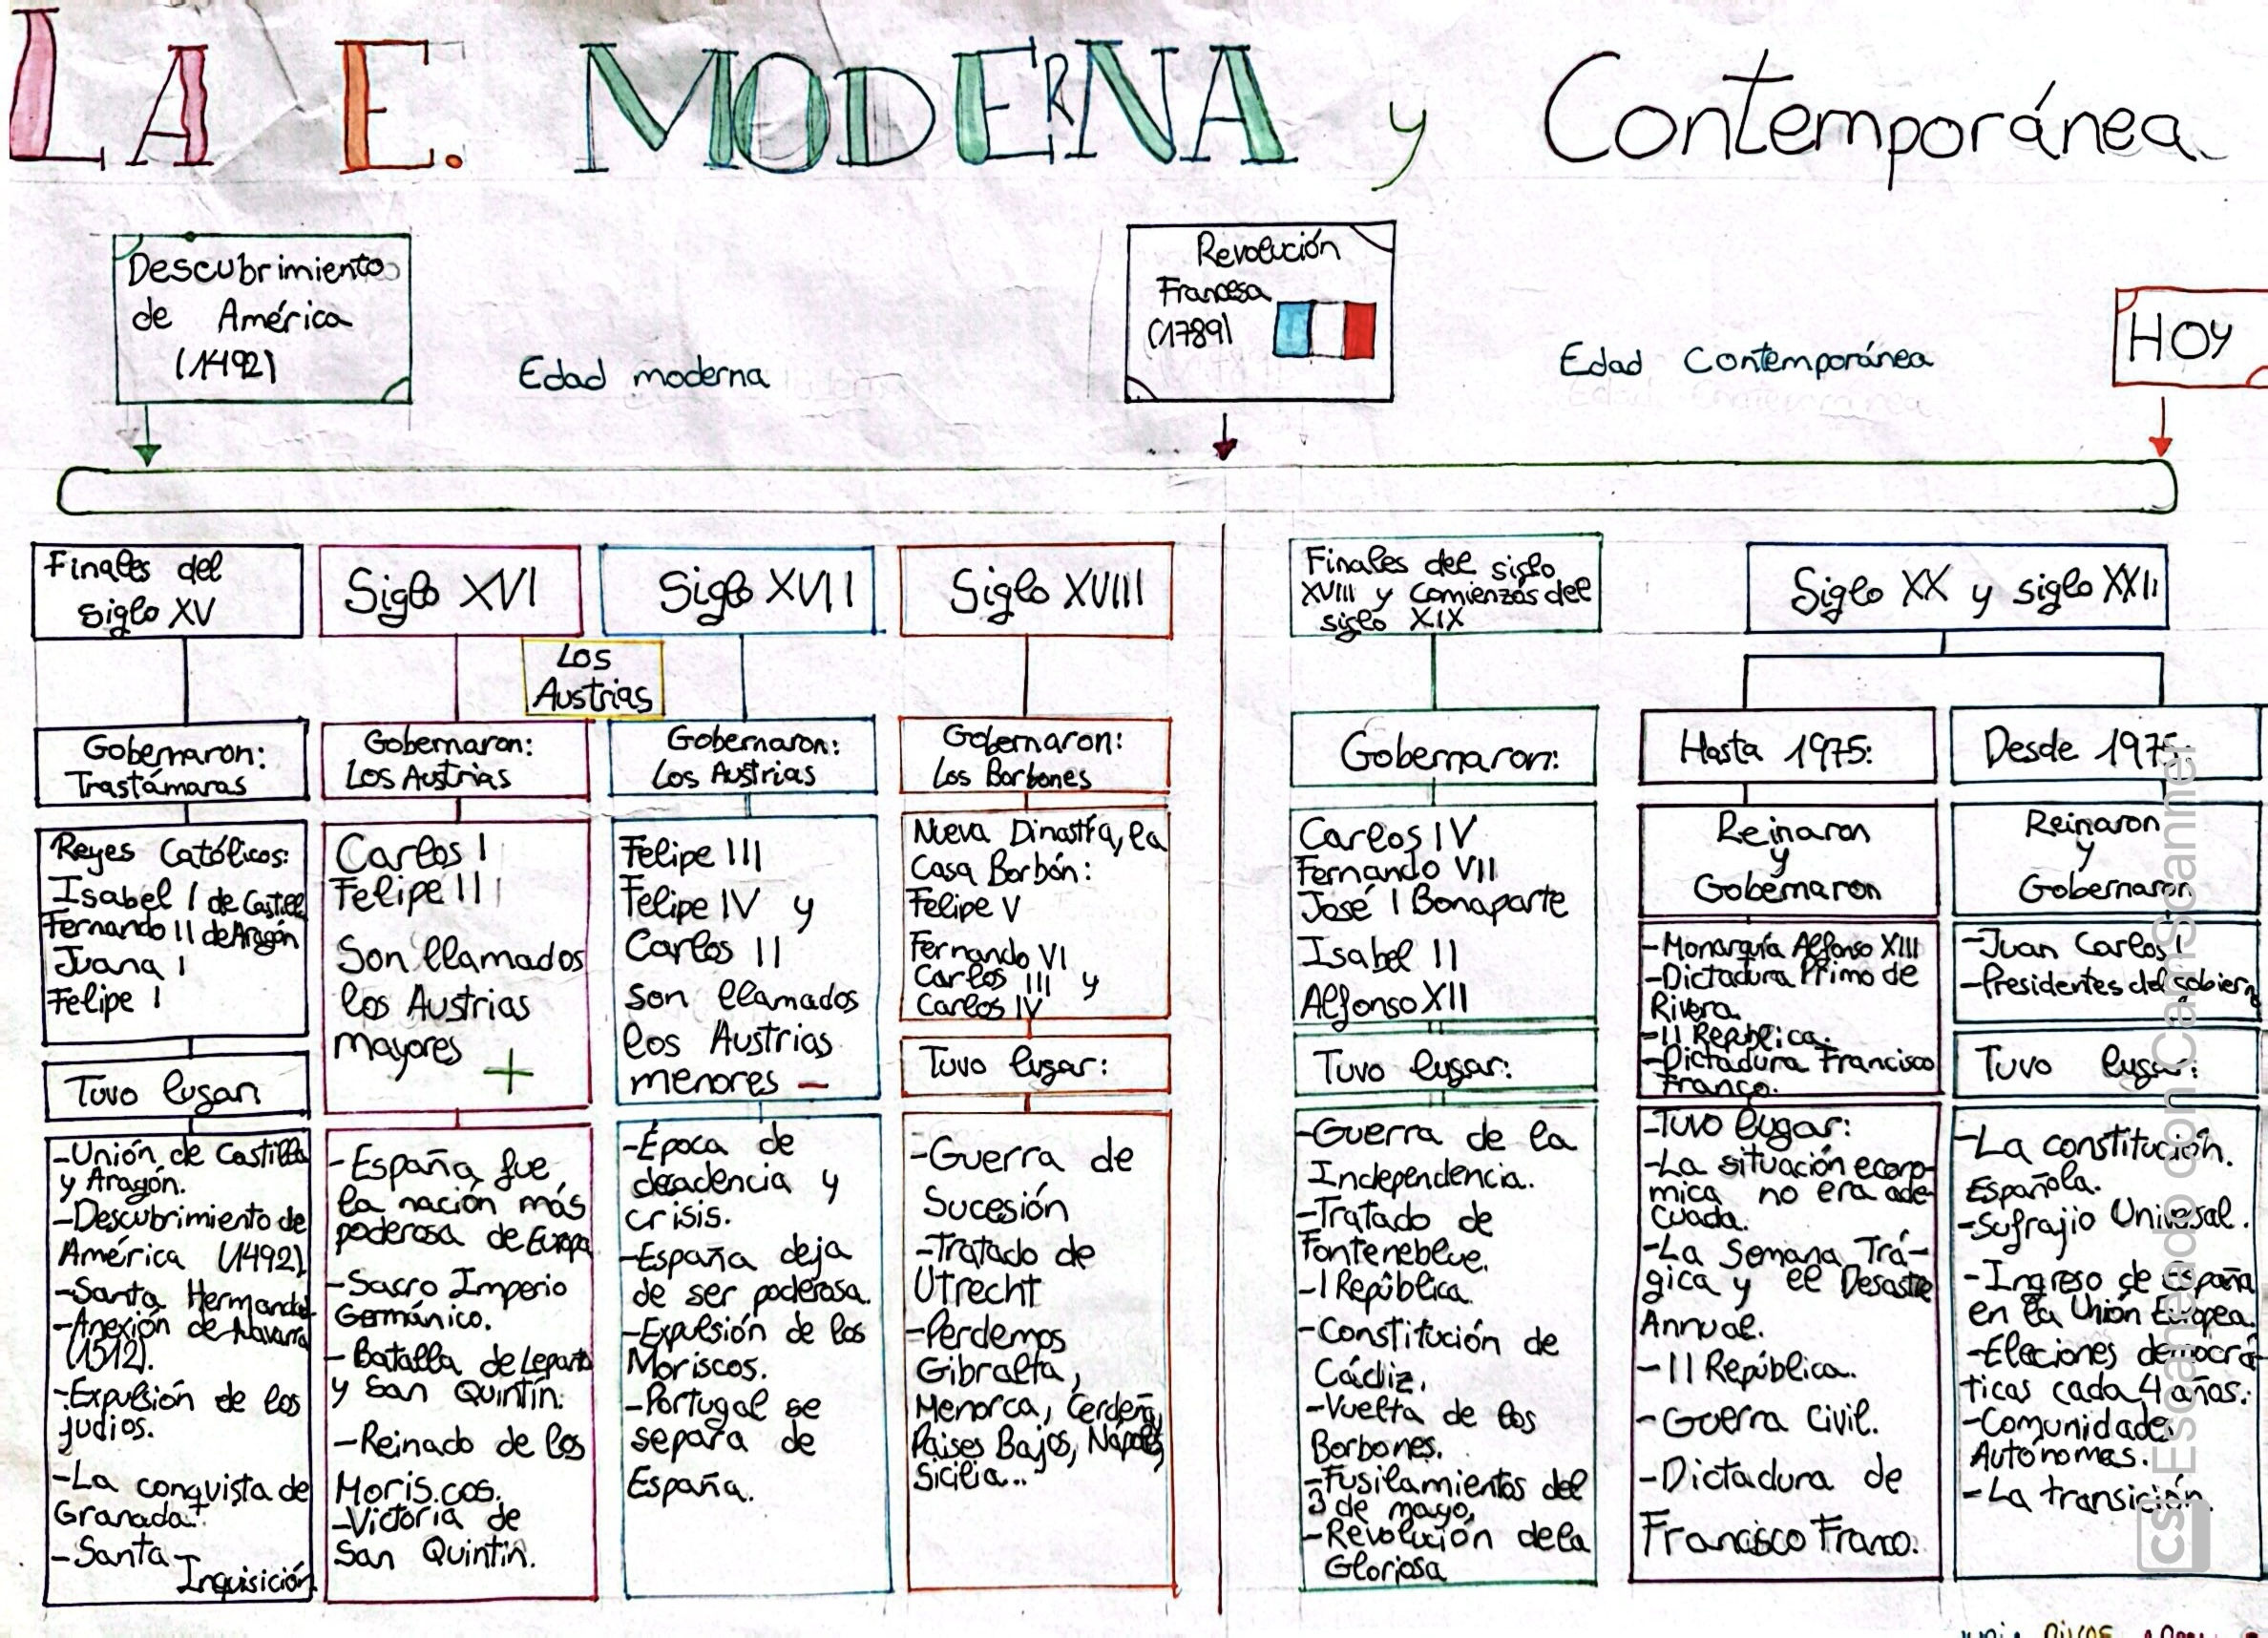 LA E. MODERNA y Contemporánea.
Descubrimiento
de América
(1492)
Edad moderna
Revolución
Francesa
(1789)
Edad Contemporánea
HOY
Finales del
siglo XV
Gobernaron:
Trastámaras
Reyes Católicos:
Isabel I de Castilla
Fernando II de Aragón
Juana I
Felipe I
Tuvo lugar
-Unión de Castilla
y Aragón.
-Descubrimiento de
América (1492)
-Santa Hermandad
-Anexión de Navarra
(1512).
-Expulsión de los
judios.
-La conquista de
Granada.
-Santa
Inquisición.
Siglo XVI
Los
Austrias
Gobernaron:
Los Austrias
Carlos I
Felipe II
Son llamados
los Austrias
mayores +
-España fue
la nación más
poderosa de Europa
-Sacro Imperio
Germánico.
-Batalla de Lepanto
y San Quintín.
-Reinado de los
Moriscos.
-Victoria de
San Quintin.
Siglo XVII
Gobernaron:
Los Austrias
Felipe III
Felipe IV y
Carlos II
son llamados
los Austrias
menores -
-Época de
decadencia y
crisis.
-España deja
de ser poderosa.
-Expulsión de los
Moriscos.
-Portugal se
separa de
España.
Siglo XVIII
Gobernaron:
Los Borbones
Nueva Dinastía, la
Casa Borbón:
Felipe V
Fernando VI
Carlos III y
Carlos IV
Tuvo lugar:
-Guerra de
Sucesión
-Tratado de
Utrecht
-Perdemos
Gibralta,
Menorca, Cerdeña,
Paises Bajos, Napoles,
Sicilia...
Finales del siglo
XVIII y Comienzos del
siglo XIX
Gobernaron:
Carlos IV
Fernando VII
José I Bonaparte
Isabel II
Alfonso XII
Tuvo lugar:
-Guerra de la
Independencia.
-Tratado de
Fonteneblue.
-I República.
-Constitución de
Cádiz.
-Vuelta de los
Borbones.
-Fusilamientos del
3 de mayo,
-Revolución de la
Gloriosa
Siglo XX y siglo XXI
Hasta 1975:
Reinaron
y
Gobernaron
-Monarquía Alfonso XIII
-Dictadura Primo de
Rivera.
-II República.
-Dictadura Francisco
Franco.
-Tuvo lugar:
-La situación econo-
mica no era ade-
cuada.
-La Semana Trá-
gica y el Desastre
Annual.
-II República.
-Guerra Civil.
-Dictadura de
Francisco Franco.
Desde 1975:
Reinaron
y
Gobernaron
-Juan Carlos I
-Presidentes del Gobierno
Tuvo lugar:
-La constitución.
Española.
-Sufrajio Universal.
-Ingreso de españa
en la Unión Europea.
-Eleciones democrá-
ticas cada 4 años.
-Comunidades
Autónomas.
-La transición.
CS Escaneado con CamScanner